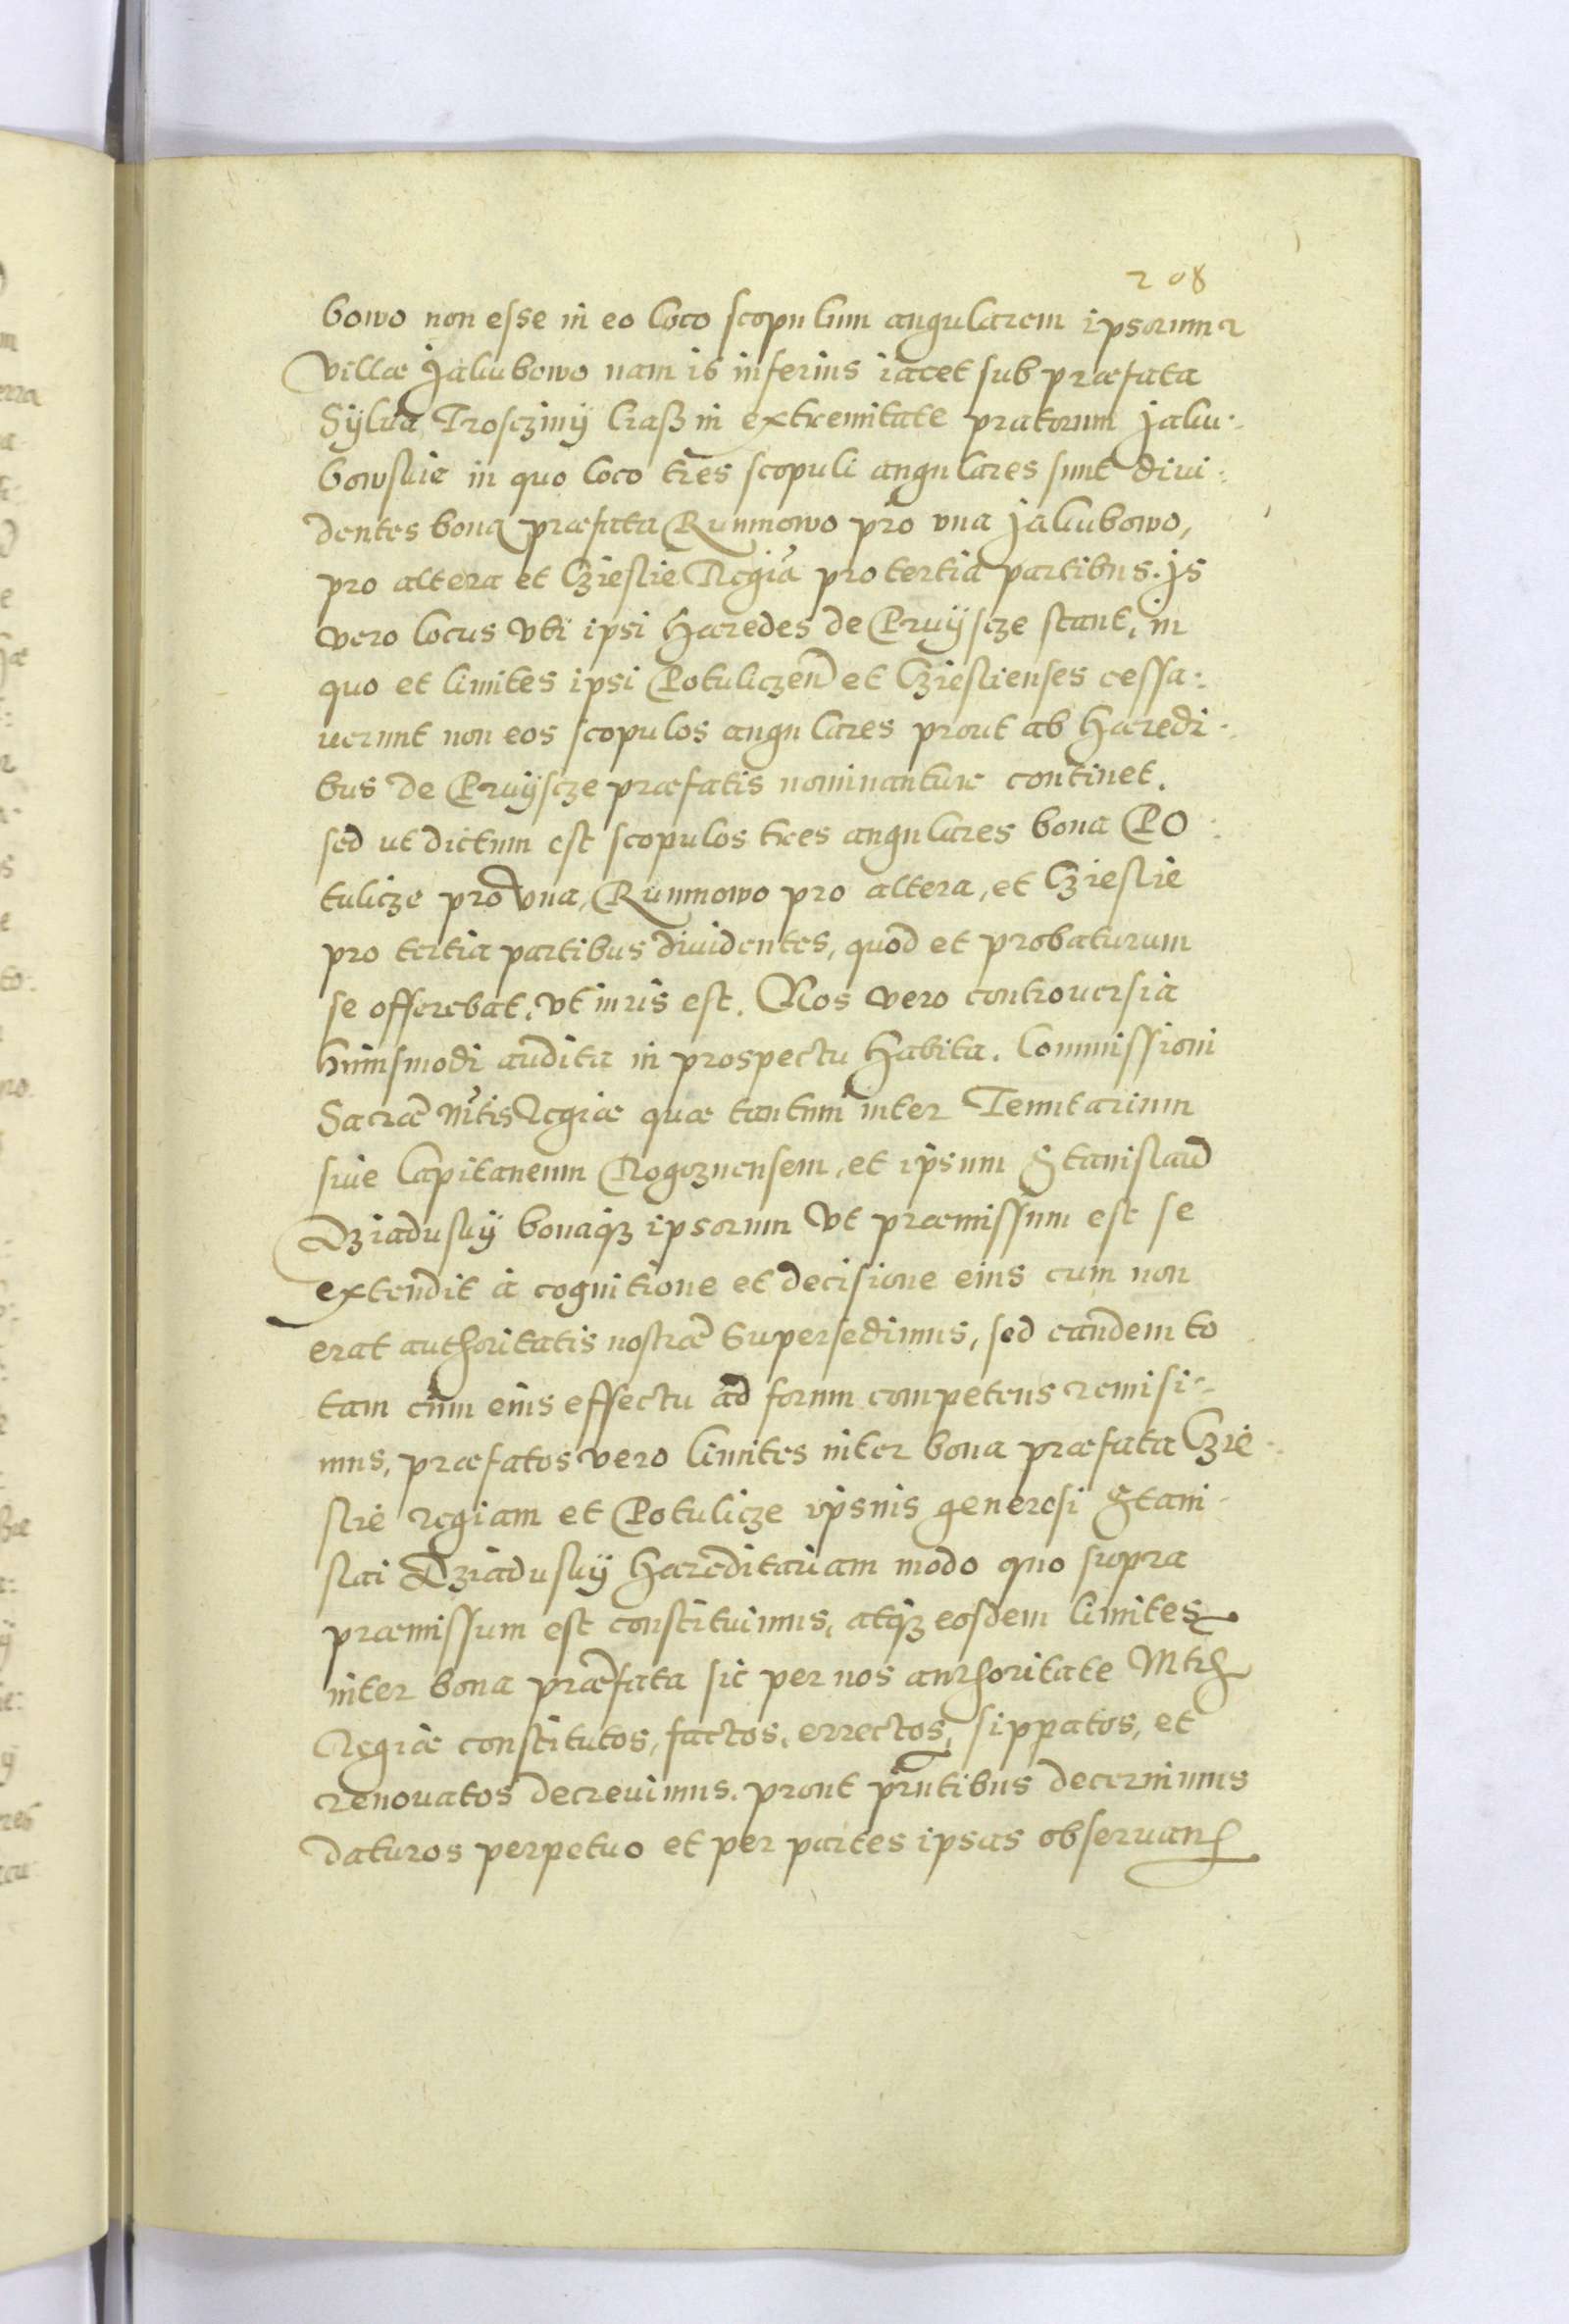 208
bowo non esse in eo loco scopulum angularem ipsorum
villæ Jakubowo nam is inferius iacet sub præfata
Sÿlua Trosczinÿ kasz in extremitate pratorum Jaku:
bowskie in quo loco tres scopuli angulares sunt diui:
dentes bona præfata Runmowo pro vna Jakubowo,
pro altera et Czieslie Regia pro tertia partibus. Js
vero locus vti ipsi Hæredes de Pruÿscze stant, in
quo et limites ipsi Potuliczen̄ et Czieslienses cessa:
uerunt non eos scopulos angulares prout ab Hæredi:
bus de Pruÿscze præfatis nominantur continet.
sed ut dictum est scopulos tres angulares bona Po:
tulicze pro vna, Runmowo pro altera, et Czieslie
pro tertia partibus diuidentes, quod et probaturum
se offerebat, vt iuris est. Nos vero controuersia
huiusmodi audita in prospectu habita. Commissioni
Sacræ Mtis Regiæ quæ tantum inter Tenutarium
siue Capitaneum Rogoznensem, et ipsum Stanislaū
Dziaduskÿ bonaqȝ ipsorum vt præmissum est se
extendit à cognitione et decisione eius cum non
erat authoritatis nostræ supersedimus, sed eandem to
tam cum eius effectu ad forum competens remisi:
mus, præfatos vero limites inter bona præfata Czie:
slie regiam et Potulicze ipsius generosi Stani:
slai Dziaduskÿ hæreditariam modo quo supra
præmissum est constituimus, atqȝ eosdem limites
inter bona præfata sic per nos authoritate Mtis
Regiæ constitutos, factos, errectos, sippatos, et
renouatos decreuimus. prout pr̄ntibus decernimus
daturos perpetuo et per partes ipsas obseruan̄